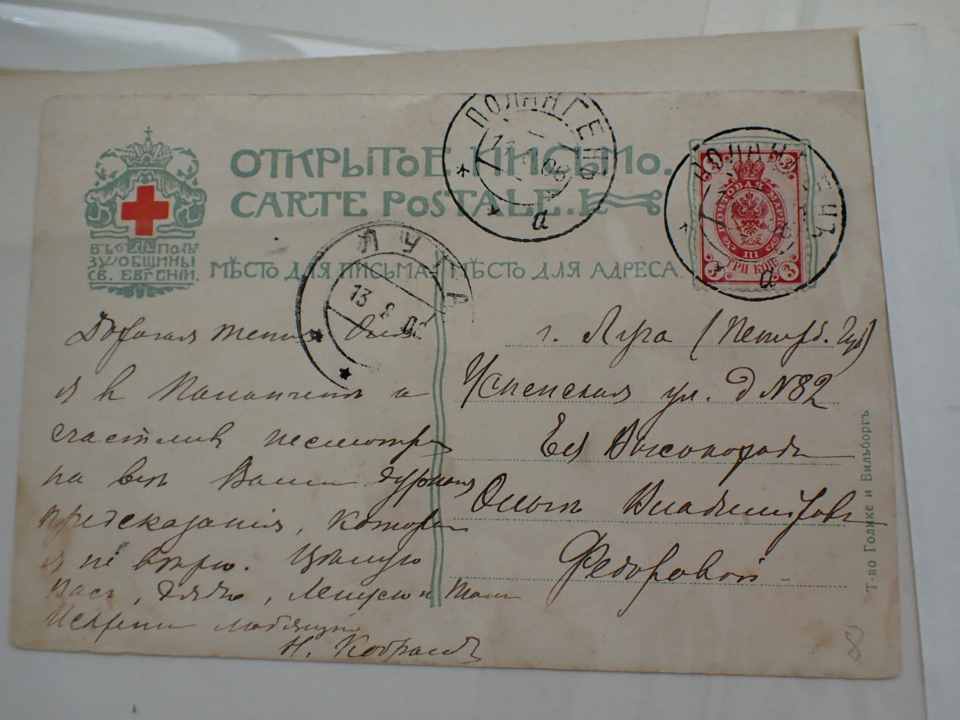 ОТКРЫТОЕ ПИСЬМО.
CARTE POSTALE.
ВЪ ПОЛЬ
ЗУ ОБЩИНЫ
СВ. ЕВГЕНІИ.
МѢСТО ДЛЯ ПИСЬМА
МѢСТО ДЛЯ АДРЕСА.
ПОЛАНГЕНЪ
а
ПОЛАНГЕНЪ
а
ПОЧТОВАЯ МАРКА
III
ТРИ КОП
3 3
ЛУГА
13 8
Дорогая тетя Оля
я в Паланген и
счастлив несмотря
на все Ваши дурныя
предсказания, которы
я не верю. Целую
Вас, дядю, и Таню
Искренно любящий
Н.
г. Луга (Петерб. Губ)
Успенская ул. д N82
Ея Высокородию
Ольге Владимировне
Федоровой
Т-во Голике и Вильборгъ